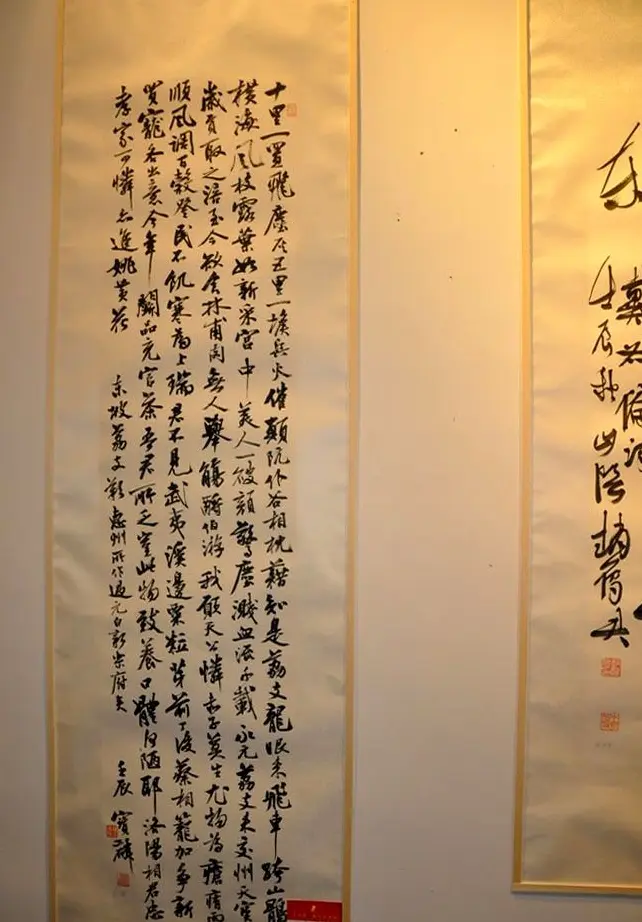 十里一置飛塵灰五里一堠兵火催顛阬仆谷相枕藉知是荔支龍眼來飛車跨山鶻
橫海風枝露葉如新采宮中美人一破顏驚塵濺血流千載永元荔支來交州天寶
歲貢取之涪至今欲食林甫肉無人舉觴酹伯游我願天公憐赤子莫生尤物為瘡痏雨
順風調百穀登民不飢寒為上瑞君不見武夷溪邊粟粒芽前丁後蔡相籠加爭新
買寵各出意今年鬭品充官茶吾君所乏豈此物致養口體何陋耶洛陽相君忠
孝家可憐亦進姚黃花 東坡荔支歎惠州所作過元白新樂府矣
壬辰 寶麟
壬辰秋